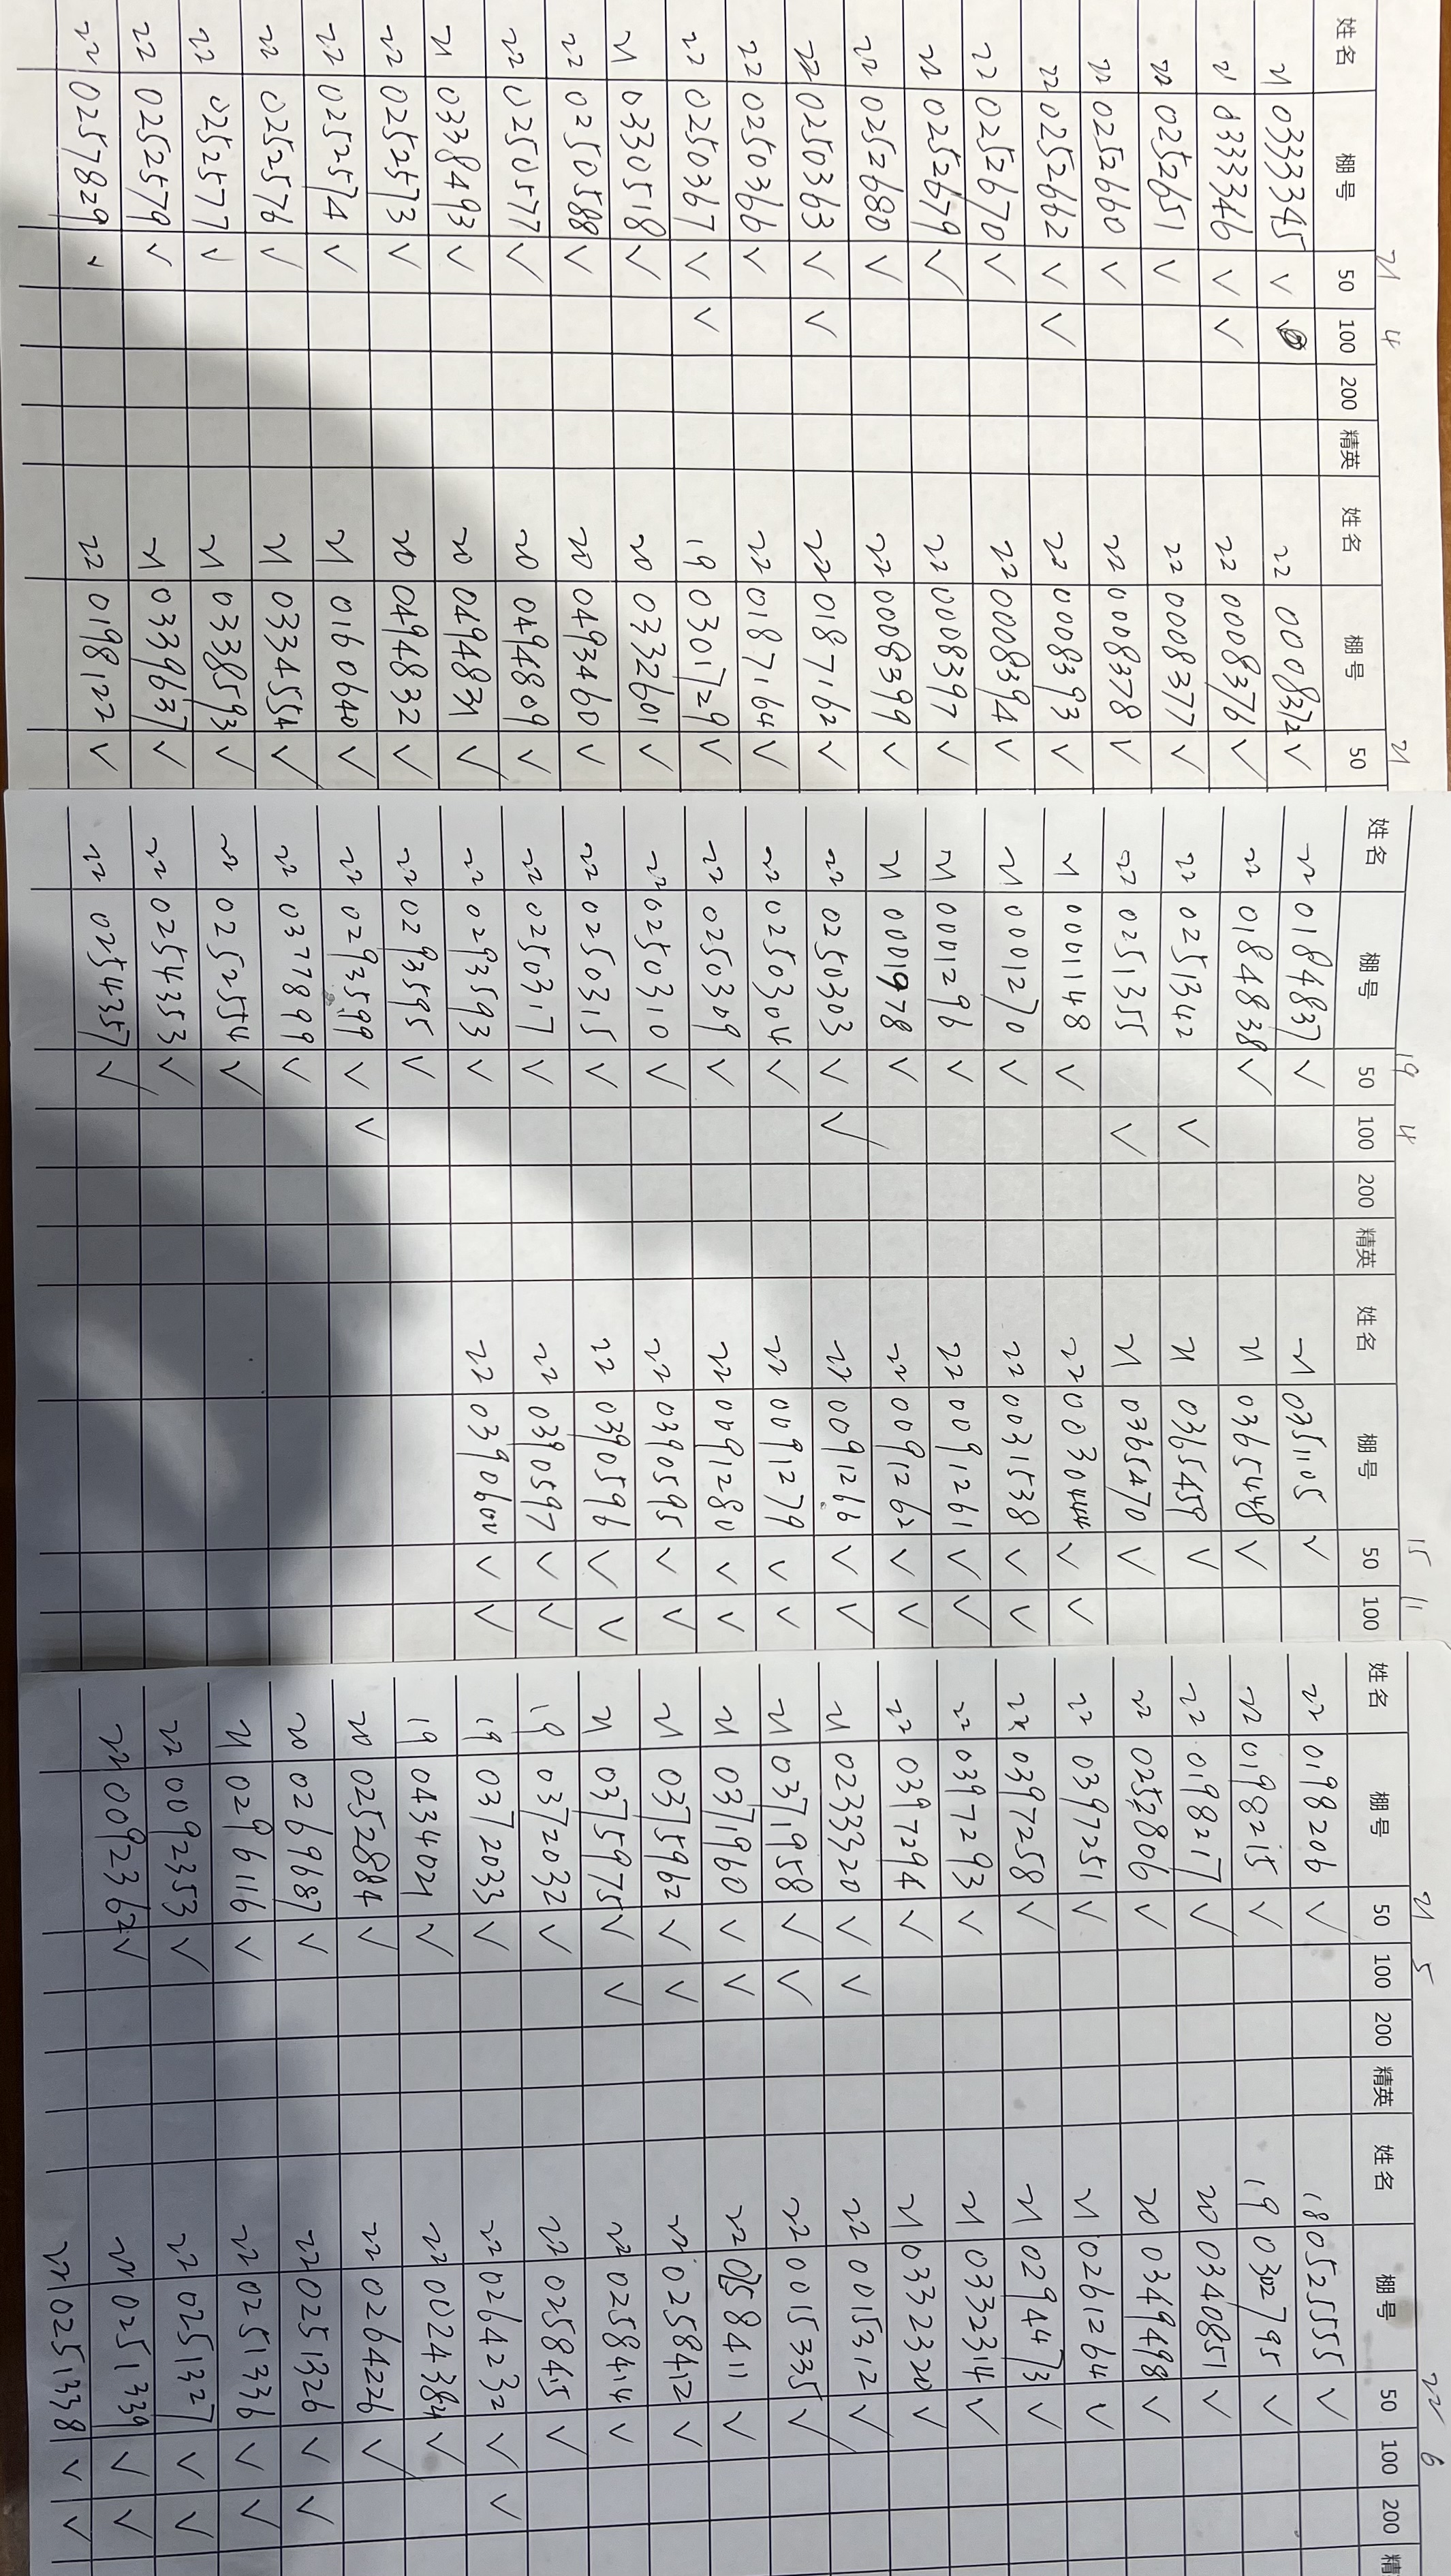 21 4 21
姓名 棚号 50 100 200 精英 姓名 棚号 50
21 0333345 ✓ 22 0008372 ✓
21 0333346 ✓ ✓ 22 0008376 ✓
22 0252651 ✓ 22 0008377 ✓
22 0252660 ✓ 22 0008378 ✓
22 0252662 ✓ ✓ 22 0008393 ✓
22 0252670 ✓ 22 0008394 ✓
22 0252679 ✓ 22 0008397 ✓
22 0252680 ✓ 22 0008399 ✓
22 0250363 ✓ ✓ 22 0187162 ✓
22 0250366 ✓ 22 0187164 ✓
22 0250367 ✓ ✓ 19 0301729 ✓
21 0330518 ✓ 20 0332601 ✓
22 0250588 ✓ 20 0493460 ✓
22 0250577 ✓ 20 0494809 ✓
21 0338493 ✓ 20 0494831 ✓
22 0252573 ✓ 20 0494832 ✓
22 0252574 ✓ 21 0160640 ✓
22 0252576 ✓ 21 0334554 ✓
22 0252577 ✓ 21 0338593 ✓
22 0252579 ✓ 21 0339637 ✓
22 0257829 ✓ 22 0198122 ✓
19 4 15 11
姓名 棚号 50 100 200 精英 姓名 棚号 50 100
22 0184837 ✓ 21 0351105 ✓
22 0184838 ✓ 21 0365448 ✓
22 0251342 ✓ 21 0365459 ✓
22 0251355 ✓ 21 0365470 ✓
21 0001148 ✓ 22 0030444 ✓ ✓
21 0001270 ✓ 22 0031538 ✓ ✓
21 0001296 ✓ 22 0091261 ✓ ✓
21 0001978 ✓ 22 0091262 ✓ ✓
22 0250303 ✓ ✓ 22 0091266 ✓ ✓
22 0250304 ✓ 22 0091279 ✓ ✓
22 0250309 ✓ 22 0091280 ✓ ✓
22 0250310 ✓ 22 0390595 ✓ ✓
22 0250315 ✓ 22 0390596 ✓ ✓
22 0250317 ✓ 22 0390597 ✓ ✓
22 0293593 ✓ 22 0390600 ✓ ✓
22 0293595 ✓
22 0293599 ✓ ✓
22 0377899 ✓
22 0252554 ✓
22 0254353 ✓
22 0254357 ✓
21 5 22 6
姓名 棚号 50 100 200 精英 姓名 棚号 50 100 200 精
22 0198206 ✓ 18 0525555 ✓
22 0198215 ✓ 19 0302795 ✓
22 0198217 ✓ 20 0340851 ✓
22 0252806 ✓ 20 0349498 ✓
22 0397251 ✓ 21 0261264 ✓
22 0397258 ✓ 21 0294473 ✓
22 0397293 ✓ 21 0332314 ✓
22 0397294 ✓ 21 0332320 ✓
21 0233320 ✓ ✓ 22 0015312 ✓
21 0371958 ✓ ✓ 22 0015335 ✓
21 0371960 ✓ ✓ 22 0258411 ✓
21 0375962 ✓ ✓ 22 0258412 ✓
21 0375975 ✓ ✓ 22 0258414 ✓
19 0372032 ✓ 22 0258415 ✓
19 0372033 ✓ 22 0264232 ✓ ✓
19 0434021 ✓ 22 0024384 ✓
20 0252884 ✓ 22 0264226 ✓
20 0269687 ✓ 22 0251326 ✓ ✓
21 0296116 ✓ 22 0251336 ✓ ✓
22 0092353 ✓ 22 0251327 ✓ ✓
22 0092362 ✓ 22 0251339 ✓ ✓
22 0251338 ✓ ✓